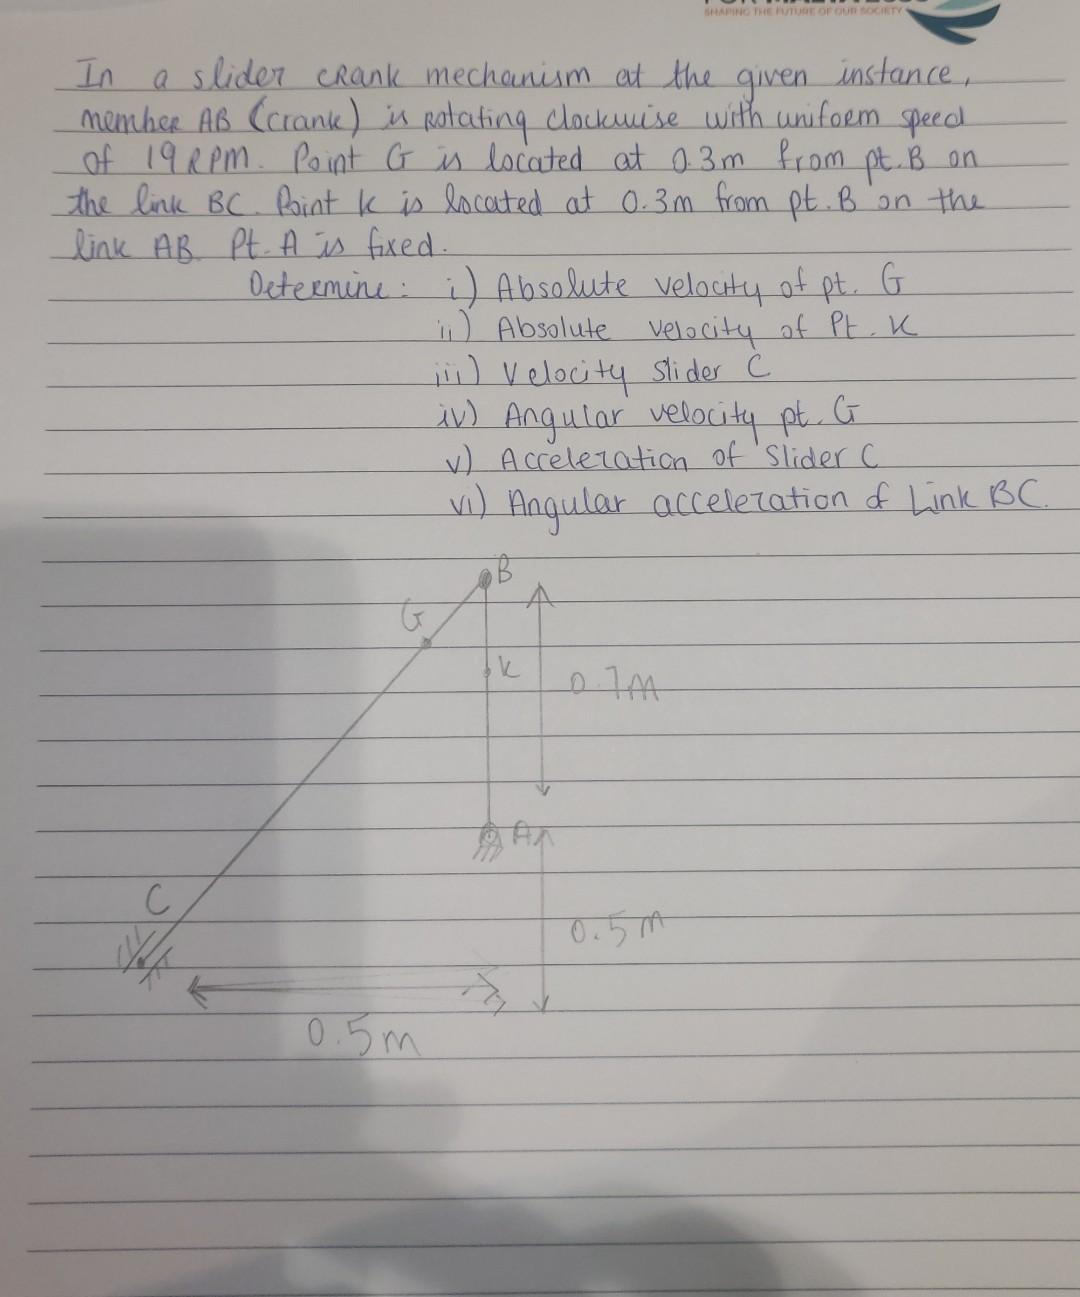 SHAPING THE FUTURE OF OUR SOCIETY
In a slider crank mechanism at the given instance,
member AB (crank) is rotating clockwise with uniform speed
of 19 RPM. Point G is located at 0.3m from pt. B on
the link BC. Point K is located at 0.3m from pt. B on the
link AB. Pt. A is fixed.
Determine: i) Absolute velocity of pt. G
ii) Absolute velocity of Pt. K
iii) Velocity slider C
iv) Angular velocity pt. G
v) Acceleration of slider C
vi) Angular acceleration of Link BC.
B
G
K
0.7m
A
C
0.5m
0.5m